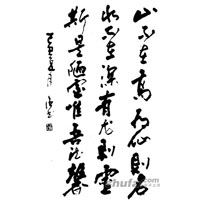 山不在高有仙则名
水不在深有龙则靈
斯是陋室唯吾德馨